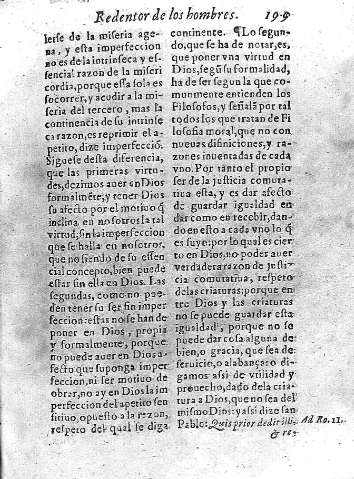 Redentor de los hombres. 199
lerse de la miseria age-
na, y esta imperfeccion
no es de la intrinseca y es-
sencial razon de la miseri
cordia, porque essa sola es
socorrer, y acudir a la mi-
seria del tercero, mas la
continencia de su intrinse
ca razon, es reprimir el a-
petito, dize imperfeciō.
Siguese desta diferencia,
que las primeras virtu-
des, dezimos auer en Dios
formalmēte, y tener Dios
su afecto por el motiuo q̄
inclina en nosotros la tal
virtud, sin la imperfeccion
que se halla en nosotros,
que no siendo de su essen
cial concepto, bien puede
estar sin ella en Dios. Las
segundas, como no pue-
den tener su ser sin imper
feccion: estas no se han de
poner en Dios, propia
y formalmente, porque
no puede auer en Dios, a-
fecto que suponga imper
feccion, ni ser motiuo de
obrar, no ay en Dios la im
perfeccion del apetito sen
sitiuo, opuesto a la razon,
respeto del qual se diga
continente. ¶ Lo segun-
do, que se ha de notar, es,
que poner vna virtud en
Dios, segū su formalidad,
ha de ser segun la que co-
munmente entienden los
Filosofos, y señalā por tal
todos los que tratan de Fi
losofia moral, que no con
nueuas difiniciones, y ra-
zones inuentadas de cada
vno. Por tanto el propio
ser de la justicia comuta-
tiua esta, y es dar afecto
de guardar igualdad en
dar como en recebir, dan-
do en esto a cada vno lo q̄
es suyo: por lo qual es cier
to en Dios, no poder auer
verdadera razon de justi-
cia comutatiua, respeto
de las criaturas: porque en
tre Dios y las criaturas
no se puede guardar esta
igualdad, porque no se
puede dar cosa alguna de
bien, o gracia, que sea de
seruicio, o alabança: o di
gamos assi de vtilidad y
prouecho, dado de la cria-
tura a Dios, que no sea del
mismo Dios: y assi dize san
Pablo: Quis prior dedit illi, Ad Ro. 11.
& re-